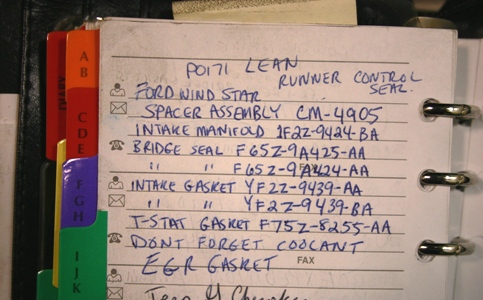 PO171 LEAN
RUNNER CONTROL
SEAL.
FORD WIND STAR
SPACER ASSEMBLY CM-4905
INTAKE MANIFOLD 1F2Z-9424-BA
BRIDGE SEAL F65Z-9A425-AA
" " F65Z-9A424-AA
INTAKE GASKET YF2Z-9439-AA
" " YF2Z-9439-BA
T-STAT GASKET F75Z-8255-AA
DONT FORGET COOLANT
EGR GASKET FAX
A
B
C
D
E
E
G
H
I
J
K